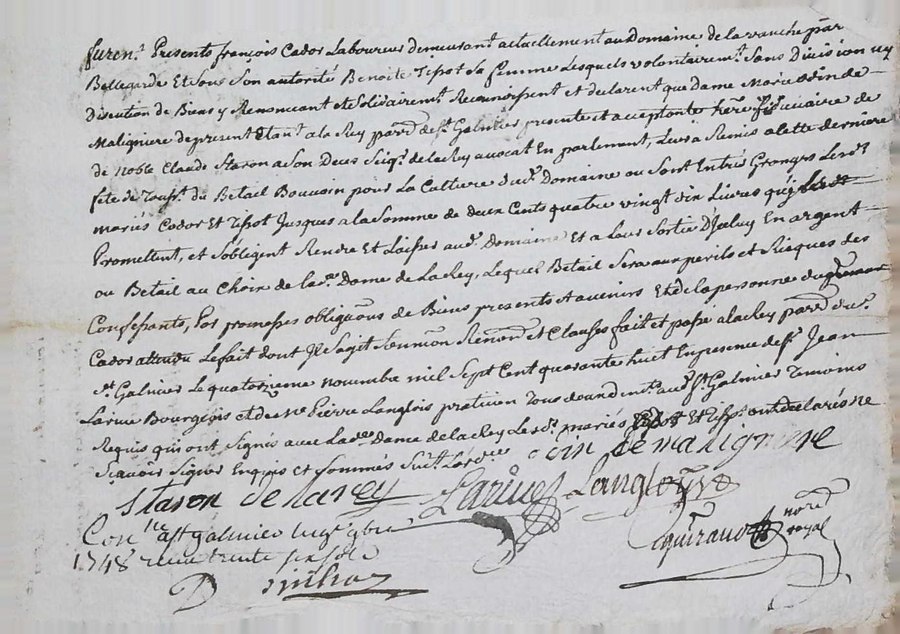 furen.t Presents françois Cador Laboureur demeurant actuellement au Domaine de la vauche par.
Bellegarde Et Sous Son autorité Benoite Tipot Sa femme Lesquels volontairem.t Sans Division ny
Discution de Biens y Renoncant et Solidairem.t Reconnoissent et declarent que Dame Marie de
Maligniere de present Etant a la Rey parr. de S.t Galmier presente et acceptante here. fiduciaire de
de noble Claude Staron a Son Deces Seig.r de la Rey avocat En parlement, Leur a Remis a la fete derniere
fete de Touss.t du Betail Bouvoin pour La Culture du d. Domaine ou Sont Entrés Grangers Les d.
mariés Cador Et Tipot Jusques a la Somme de deux Cents quatre vingt dix Livres
Promettent, et S'obligent Rendre Et Laisser aud. Domaine Et a Leur Sortie D'Iceluy En argent
ou Betail au Choix de la d. Dame de la Rey, Lequel Betail Sera aux perils et Risques des
Confessants, Par promesses obligaons de Biens presents et avenirs Et de la personne dud.
Cador attendu Le fait dont Il S'agit Soumon Renon.on et Clauses fait et passé a la Rey parr. du d.
S.t Galmier Le quatorzieme novembre mil Sept Cent quarante huit En presence de S.r Jean
Larue Bourgeois et de me Pierre Langlois praticien Tous deux dem.t aud. S.t Galmier Temoins
Requis qui ont Signés avec La ditte Dame de la Rey Les d. mariés Cador Et Tipot ont declarés ne
Scavoir Signer Enquis et Sommés
de maligniere
Staron de la rey Larue Langloys
Con.lle a St galmier 9bre
1748 Recu trente six sols nore. royal